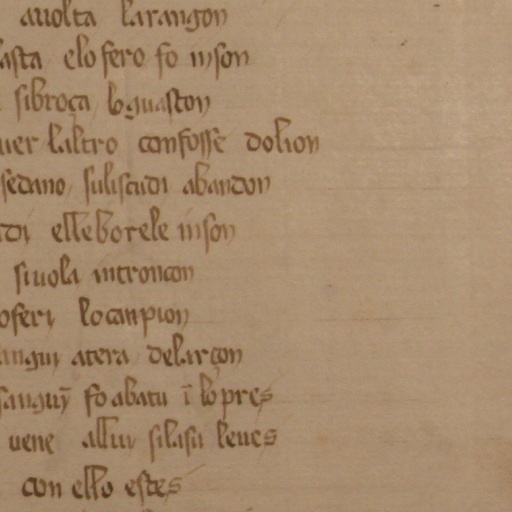 auolta larangon
asta elo fero fo inson
sibroça lo guaston
uer laltro confosse dolion
sedano suliscudi abandon
di elle borele inson
si uola intronçon
oferi lo canpion
angui atera delarçon
sanguȳ fo abatu ī lo pres
uene allui si lasu leues
con ello estes